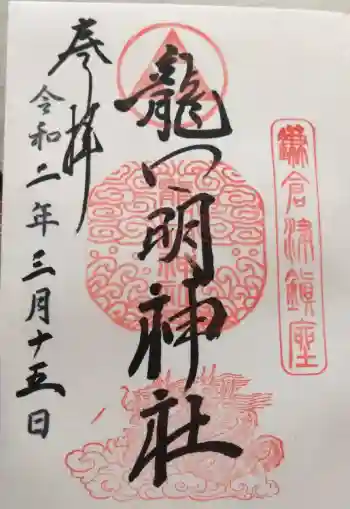 鎌倉津鎮座
龍口明神社
奉拝
令和二年三月十五日